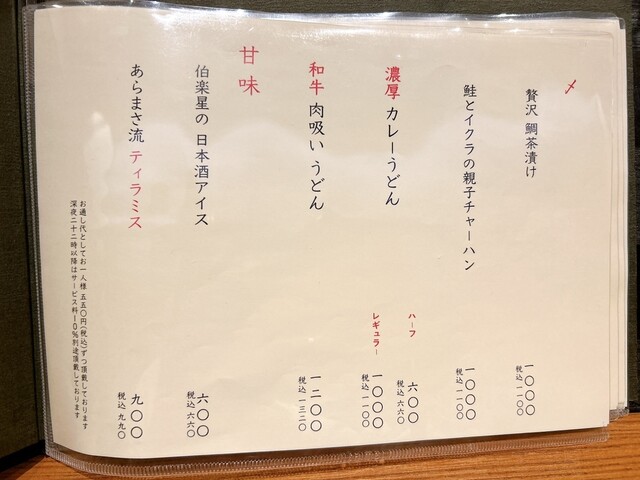 〆
贅沢 鯛茶漬け
一〇〇〇
税込 一一〇〇
鮭とイクラの親子チャーハン
一〇〇〇
税込 一一〇〇
濃厚 カレーうどん
ハーフ
六〇〇
税込 六六〇
レギュラー
一〇〇〇
税込 一一〇〇
和牛 肉吸い うどん
一二〇〇
税込 一三二〇
甘味
伯楽星の 日本酒アイス
六〇〇
税込 六六〇
あらまさ流 ティラミス
九〇〇
税込 九九〇
お通し代としてお一人様 五五〇円(税込)ずつ頂戴しております
深夜二十二時以降はサービス料10%別途頂戴しております